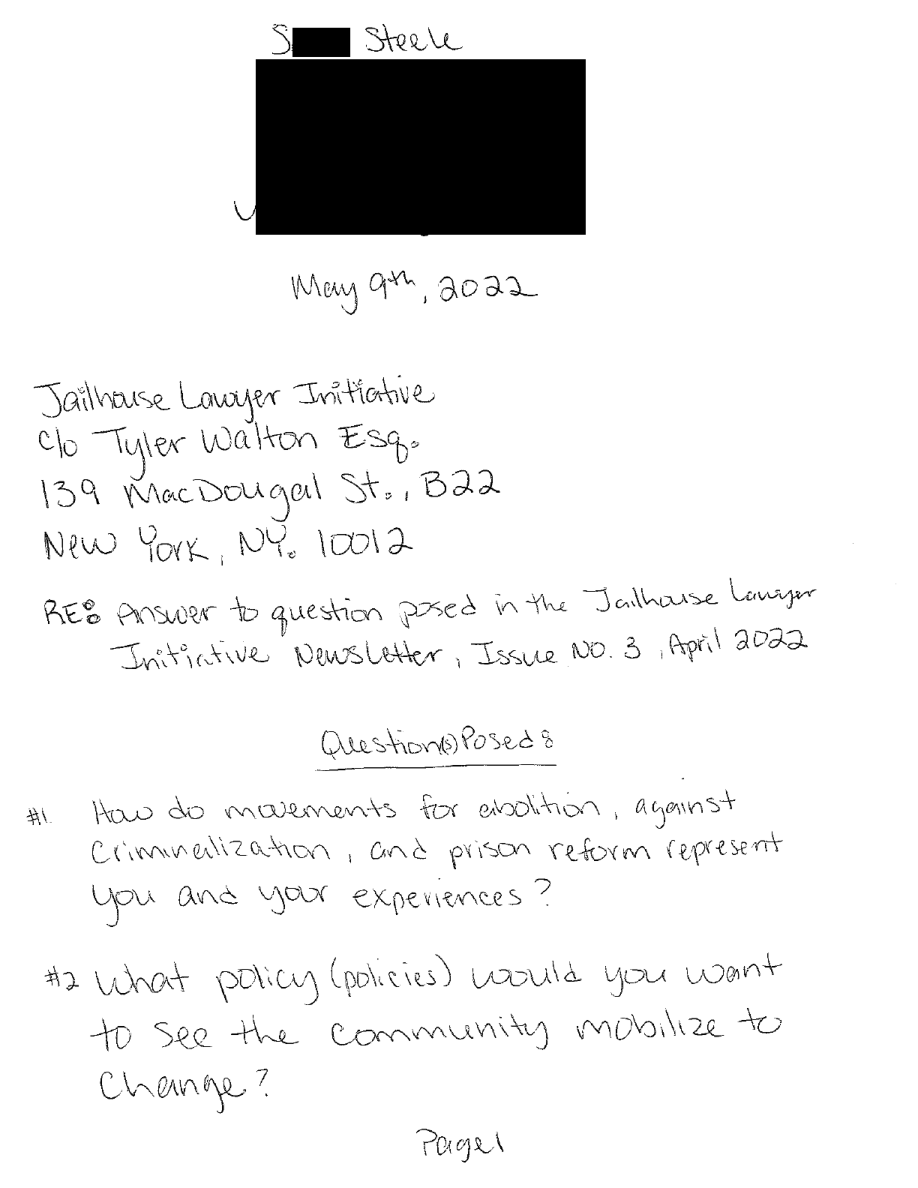 S Steele
May 9th, 2022
Jailhouse Lawyer Initiative
c/o Tyler Walton Esq.
139 MacDougal St., B22
New York, NY. 10012
RE: Answer to question posed in the Jailhouse Lawyer
Initiative Newsletter, Issue NO. 3, April 2022
Question(s) Posed:
#1. How do movements for abolition, against
Criminalization, and prison reform represent
you and your experiences?
#2 What policy (policies) would you want
to see the community mobilize to
Change?
Page 1